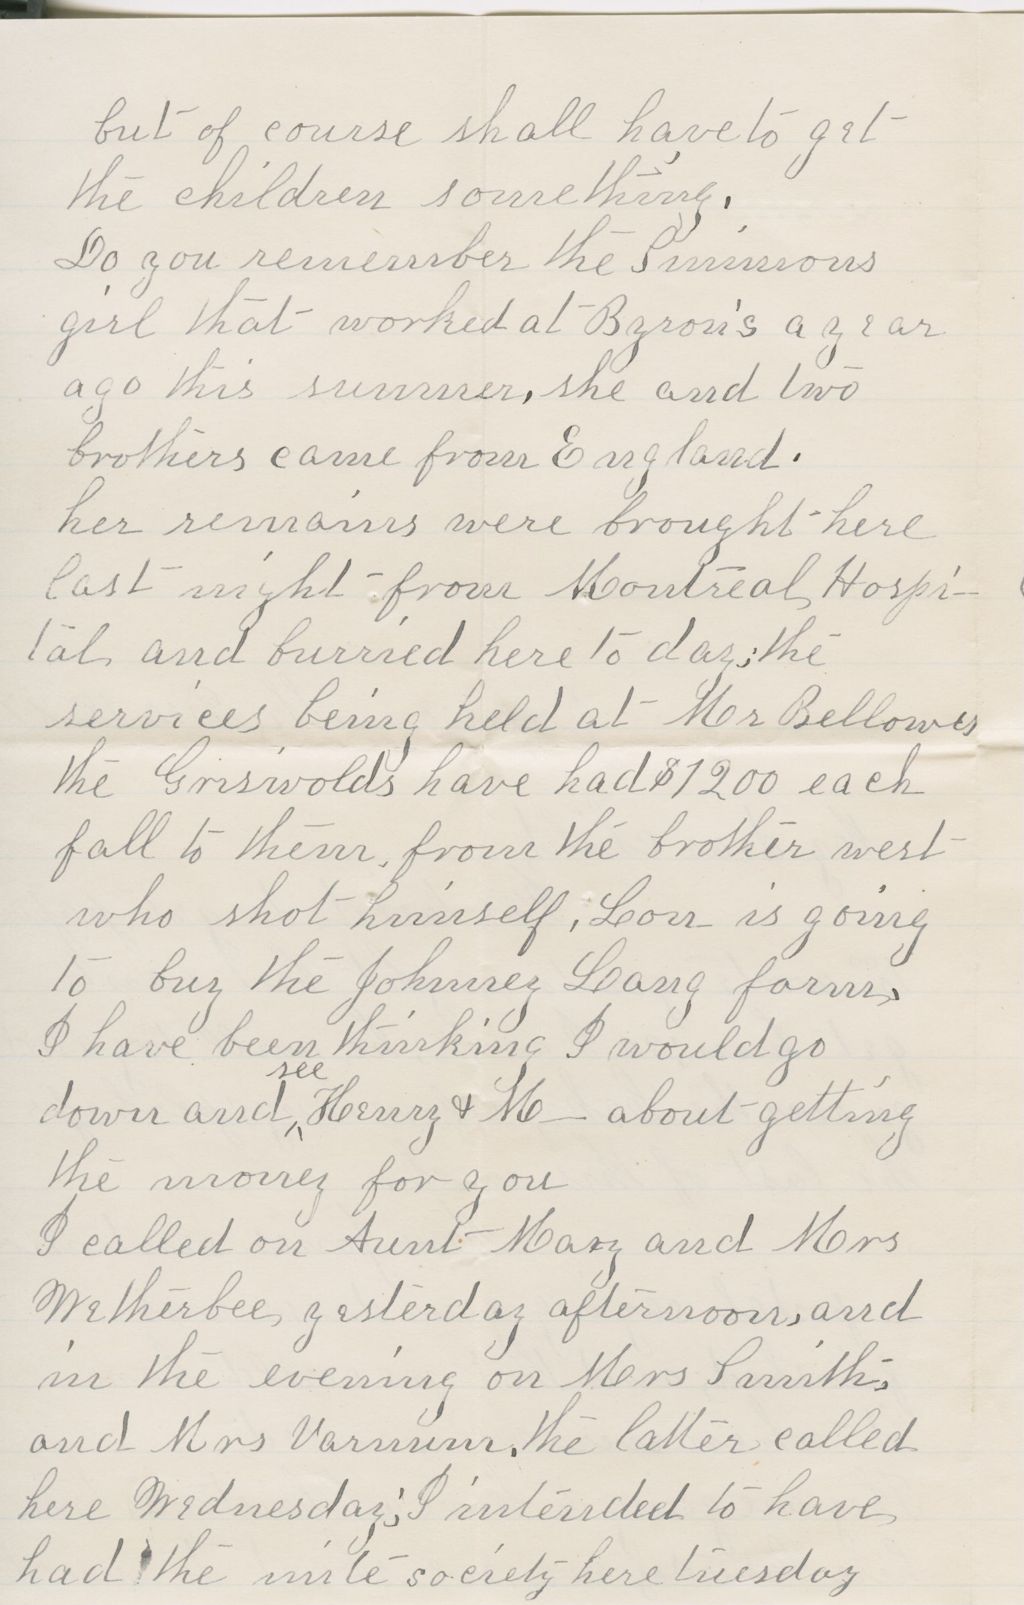 but of course shall have to get
the children something.
Do you remember the Simmons
girl that worked at Byron's a year
ago this summer, she and two
brothers came from England.
her remains were brought here
last night from Montreal Hospi-
tal, and burried here to day; the
services being held at Mr Bellowes
the Griswolds have had $1200 each
fall to them, from the brother west
who shot himself, Lon is going
to buy the Johnney Lang farm,
I have been thinking I would go
down and see Henry & M— about getting
the money for you
I called on Aunt Mary and Mrs
Wetherbee, yesterday afternoon, and
in the evening on Mrs Smith,
and Mrs Varnum, the latter called
here Wednesday; I intended to have
had the mite society here tuesday